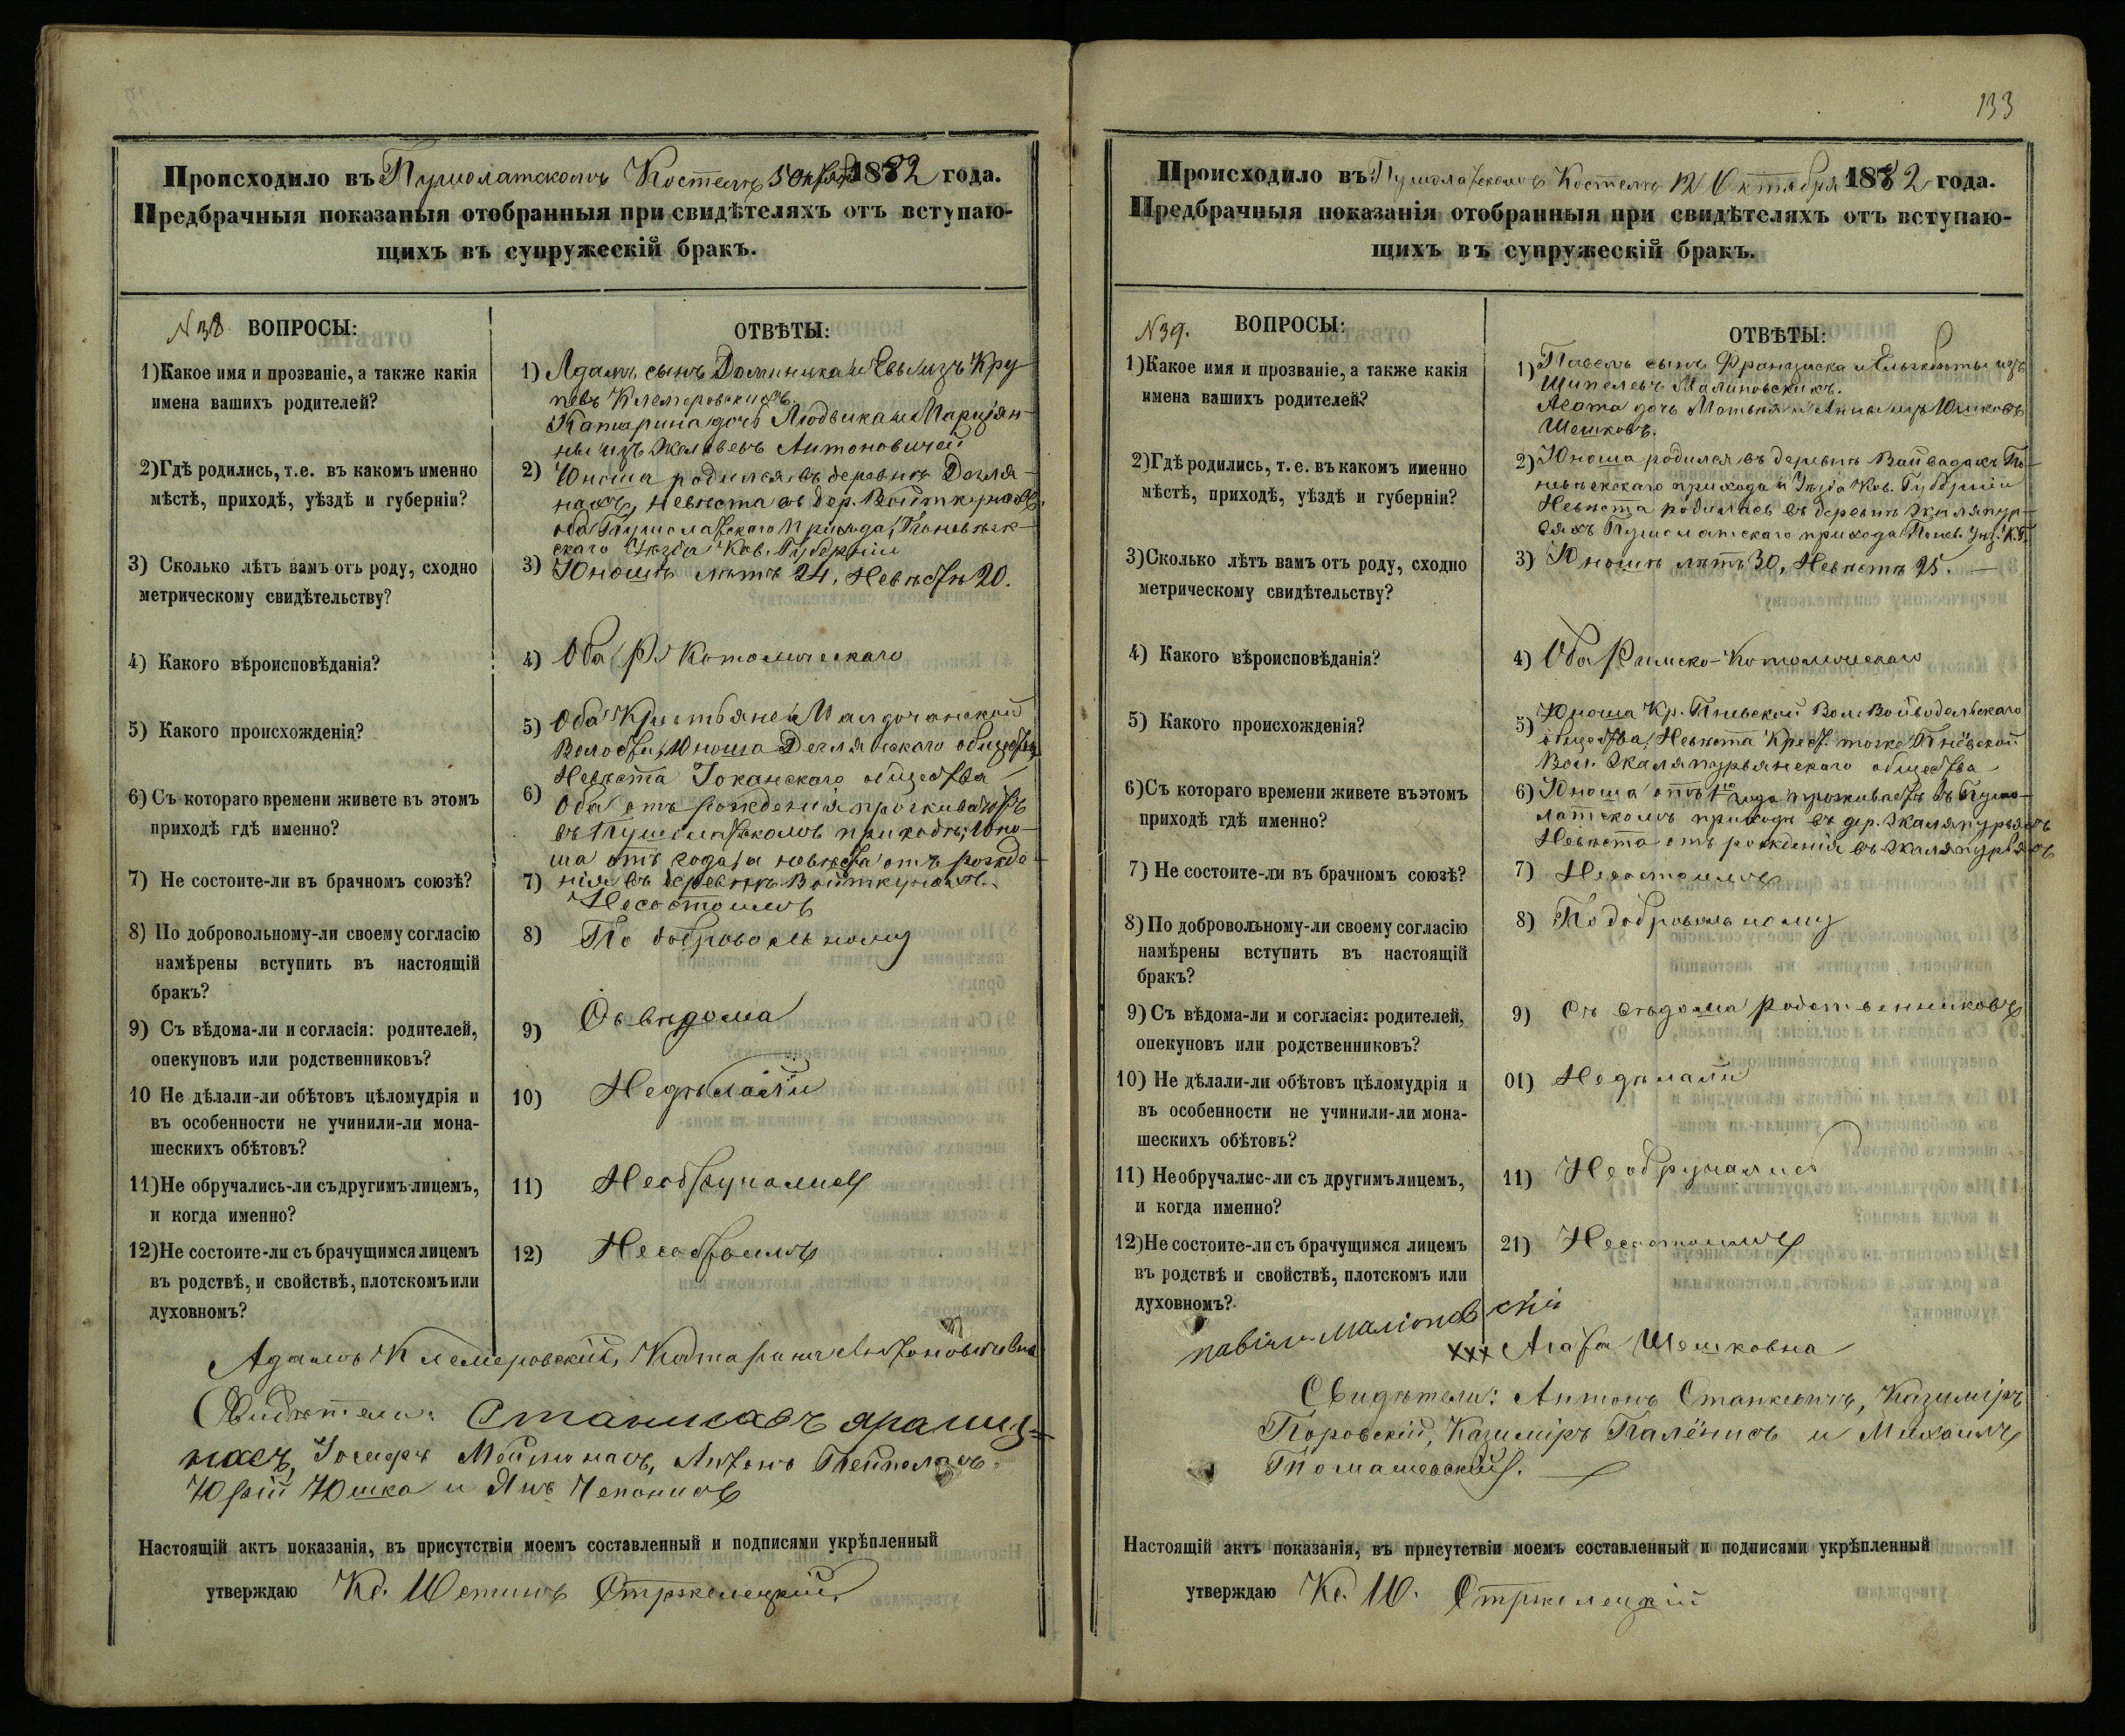 Происходило въ Пушолатскомъ Костелѣ 5 Октября 1882 года.
Предбрачныя показанія отобранныя при свидѣтеляхъ отъ вступаю-
щихъ въ супружескій бракъ.
N 38 ВОПРОСЫ:
ОТВѢТЫ:
1) Какое имя и прозваніе, а также какія
имена вашихъ родителей?
1) Адамъ сынъ Доминика и Евы изъ Кру
Клемеровскихъ.
Катарина дочь Людвика и Маріян-
ны изъ Антоновичей
2) Гдѣ родились, т.е. въ какомъ именно
мѣстѣ, приходѣ, уѣздѣ и губерніи?
2) Юноша родился въ деревнѣ Дегля-
нахъ, невѣста въ дер. Войткунахъ,
оба Пушолатскаго прихода, Поневѣж-
скаго Уѣзда Ков. Губерніи
3) Сколько лѣтъ вамъ отъ роду, сходно
метрическому свидѣтельству?
3) Юношѣ лѣтъ 24, Невѣстѣ 20.
4) Какого вѣроисповѣданія?
4) Оба Р. Католическаго
5) Какого происхожденія?
5) Оба Крестьяне
Волости, Юноша Деглянскаго общества
Невѣста Јоканскаго общества
6) Съ котораго времени живете въ этомъ
приходѣ гдѣ именно?
6) Оба отъ рожденія проживаютъ
въ Пушолатскомъ приходѣ; Юно-
ша отъ года, а невѣста отъ рожде-
нія въ деревнѣ Войткунахъ.
7) Не состоите-ли въ брачномъ союзѣ?
7) Несостоимъ
8) По добровольному-ли своему согласію
намѣрены вступить въ настоящій
бракъ?
8) По добровольному
9) Съ вѣдома-ли и согласія: родителей,
опекуновъ или родственниковъ?
9) Съ вѣдома
10 Не дѣлали-ли обѣтовъ цѣломудрія и
въ особенности не учинили-ли мона-
шескихъ обѣтовъ?
10) Недѣлали
11) Не обручались-ли съ другимъ лицемъ,
и когда именно?
11) Необручались
12) Не состоите-ли съ брачущимся лицемъ
въ родствѣ, и свойствѣ, плотскомъ или
духовномъ?
12) Несостоимъ
Адамъ Клемеровскій, Катарина Антоновичовна
Свидѣтели: Станиславъ
Іосифъ Антонъ
Юрій Юшка и Янъ Чепонисъ
Настоящій актъ показанія, въ присутствіи моемъ составленный и подписями укрѣпленный
утверждаю Кс. Стржелецкій
133
Происходило въ Пушолатскомъ Костелѣ 12 Октября 1882 года.
Предбрачныя показанія отобранныя при свидѣтеляхъ отъ вступаю-
щихъ въ супружескій бракъ.
N 39. ВОПРОСЫ:
ОТВѢТЫ:
1) Какое имя и прозваніе, а также какія
имена вашихъ родителей?
1) Павелъ сынъ Франциска и Ельжбеты изъ
Шипелевъ Малиновскихъ.
Агата дочь Матвея и Анны изъ Юшковъ
Шешковъ.
2) Гдѣ родились, т. е. въ какомъ именно
мѣстѣ, приходѣ, уѣздѣ и губерніи?
2) Юноша родился въ деревнѣ Вайвадахъ По-
невѣжскаго прихода и Уѣзда Ков. Губерніи
Невѣста родилась въ деревнѣ Жаляпур-
вяхъ Пушолатскаго прихода Понев. Уѣз. К. Г.
3) Сколько лѣтъ вамъ отъ роду, сходно
метрическому свидѣтельству?
3) Юношѣ лѣтъ 30, Невѣстѣ 25.
4) Какого вѣроисповѣданія?
4) Оба Римско-Католическаго
5) Какого происхожденія?
5) Юноша Кр. Пневской Вол. Войводельскаго
общества, Невѣста Крест. тоже Пнёвской
Вол. Жаляпурвянскаго общества
6) Съ котораго времени живете въ этомъ
приходѣ гдѣ именно?
6) Юноша отъ 1го года проживаетъ въ Пушо-
латскомъ приходѣ въ дер. Жаляпурвяхъ
Невѣста отъ рожденія въ Жаляпурвяхъ
7) Не состоите-ли въ брачномъ союзѣ?
7) Несостоимъ
8) По добровольному-ли своему согласію
намѣрены вступить въ настоящій
бракъ?
8) По добровольному
9) Съ вѣдома-ли и согласія: родителей,
опекуновъ или родственниковъ?
9) Съ вѣдома родственниковъ
10) Не дѣлали-ли обѣтовъ цѣломудрія и
въ особенности не учинили-ли мона-
шескихъ обѣтовъ?
01) Недѣлали
11) Необручалис-ли съ другимъ лицемъ,
и когда именно?
11) Необручались
12) Не состоите-ли съ брачущимся лицемъ
въ родствѣ и свойствѣ, плотскомъ или
духовномъ?
21) Несостоимъ
xxx Агата Шешковна
Свидѣтели: Антонъ Станкевичъ, Казиміръ
Поровскій, Казиміръ Палёнисъ и Михаилъ
Томашевскій.
Настоящій актъ показанія, въ присутствіи моемъ составленный и подписями укрѣпленный
утверждаю Кс. Ю. Стржелецкій